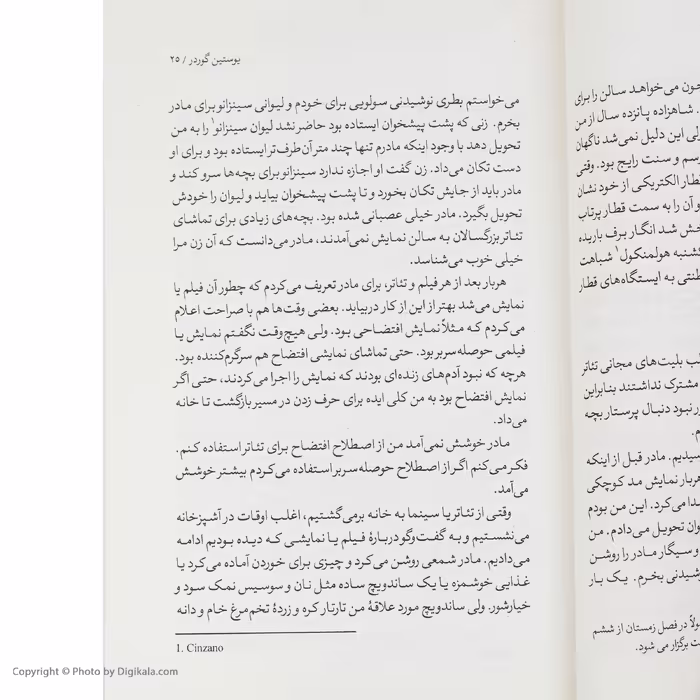 یوستین گوردر / ۲۵
می‌خواستم بطری نوشیدنی سولویی برای خودم و لیوانی سینزانو برای مادر
بخرم. زنی که پشت پیشخوان ایستاده بود حاضر نشد لیوان سینزانو۱ را به من
تحویل دهد با وجود اینکه مادرم تنها چند متر آن طرف‌تر ایستاده بود و برای او
دست تکان می‌داد. زن گفت او اجازه ندارد سینزانو برای بچه‌ها سرو کند و
مادر باید از جایش تکان بخورد و تا پشت پیشخوان بیاید و لیوان را خودش
تحویل بگیرد. مادر خیلی عصبانی شده بود. بچه‌های زیادی برای تماشای
تئاتر بزرگسالان به سالن نمایش نمی‌آمدند، مادر می‌دانست که آن زن مرا
خیلی خوب می‌شناسد.
هربار بعد از هر فیلم و تئاتر، برای مادر تعریف می‌کردم که چطور آن فیلم یا
نمایش می‌شد بهتر از این از کار دربیاید. بعضی وقت‌ها هم با صراحت اعلام
می‌کردم که مثلاً نمایش افتضاحی بود. ولی هیچ‌وقت نگفتم نمایش یا
فیلمی حوصله‌سربر بود. حتی تماشای نمایشی افتضاح هم سرگرم‌کننده بود.
هرچه که نبود آدم‌های زنده‌ای بودند که نمایش را اجرا می‌کردند، حتی اگر
نمایش افتضاح بود به من کلی ایده برای حرف زدن در مسیر بازگشت تا خانه
می‌داد.
مادر خوشش نمی‌آمد من از اصطلاح افتضاح برای تئاتر استفاده کنم.
فکر می‌کنم اگر از اصطلاح حوصله‌سربر استفاده می‌کردم بیشتر خوشش
می‌آمد.
وقتی از تئاتر یا سینما به خانه برمی‌گشتیم، اغلب اوقات در آشپزخانه
می‌نشستیم و به گفت‌وگو دربارهٔ فیلم یا نمایشی که دیده بودیم ادامه
می‌دادیم. مادر شمعی روشن می‌کرد و چیزی برای خوردن آماده می‌کرد یا
غذایی خوشمزه یا یک ساندویچ ساده مثل نان و سوسیس نمک سود و
خیارشور. ولی ساندویچ مورد علاقهٔ من تارتار کره و زردهٔ تخم‌مرغ خام و دانه
1. Cinzano
می‌خواهد سالن را برای
شاهزاده پانزده سال از من
این دلیل نمی‌شد ناگهان
رسم و سنت رایج بود. وقتی
قطار الکتریکی از خود نشان
و آن را به سمت قطار پرتاب
شد انگار برف باریده
هولمنکول۱ شباهت
به ایستگاه‌های قطار
بلیت‌های مجانی تئاتر
مشترک نداشتند بنابراین
نبود دنبال پرستار بچه
مادر قبل از اینکه
هربار نمایش مد کوچکی
می‌کرد. این من بودم
تحویل می‌دادم. من
و سیگار مادر را روشن
بخرم. یک بار
در فصل زمستان از ششم
برگزار می شود.
Copyright © Photo by Digikala.com